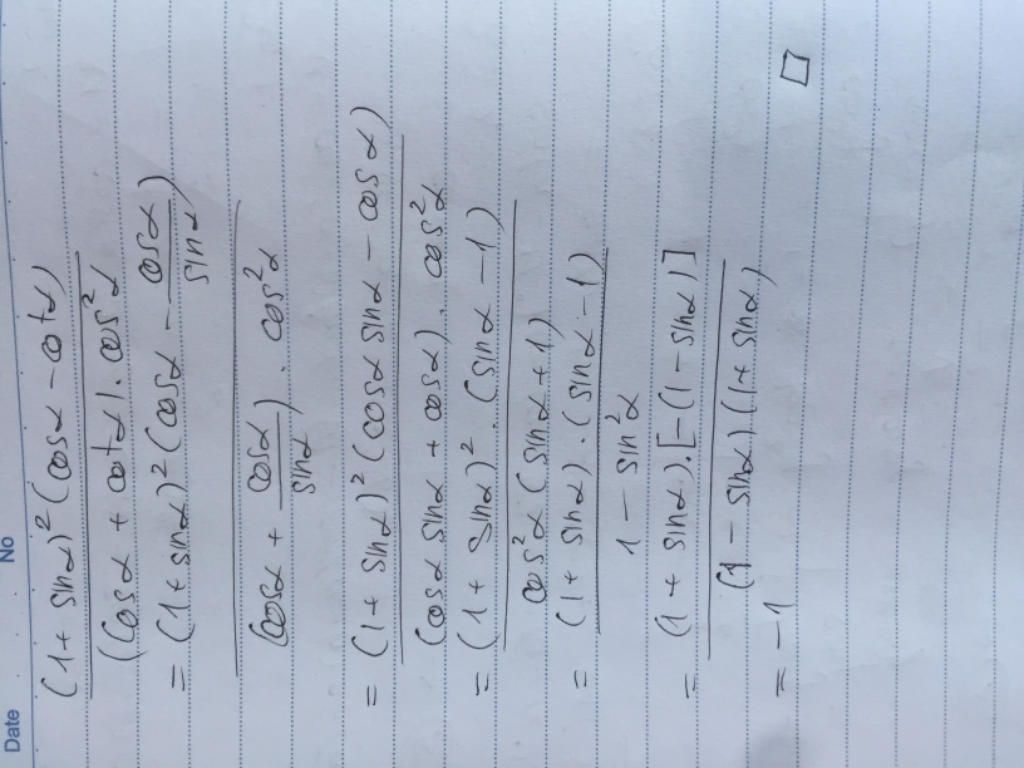 Date No
(1 + sinα)² (cosα - cotα)
(cosα + cotα). cos²α
= (1 + sinα)² (cosα - cosα
sinα)
(cosα + cosα
sinα). cos²α
= (1 + sinα)² (cosα sinα - cosα)
(cosα sinα + cosα). cos²α
= (1 + sinα)². (sinα - 1)
cos²α (sinα + 1)
= (1 + sinα). (sinα - 1)
1 - sin²α
= (1 + sinα). [-(1 - sinα)]
(1 - sinα)(1 + sinα)
= -1 □